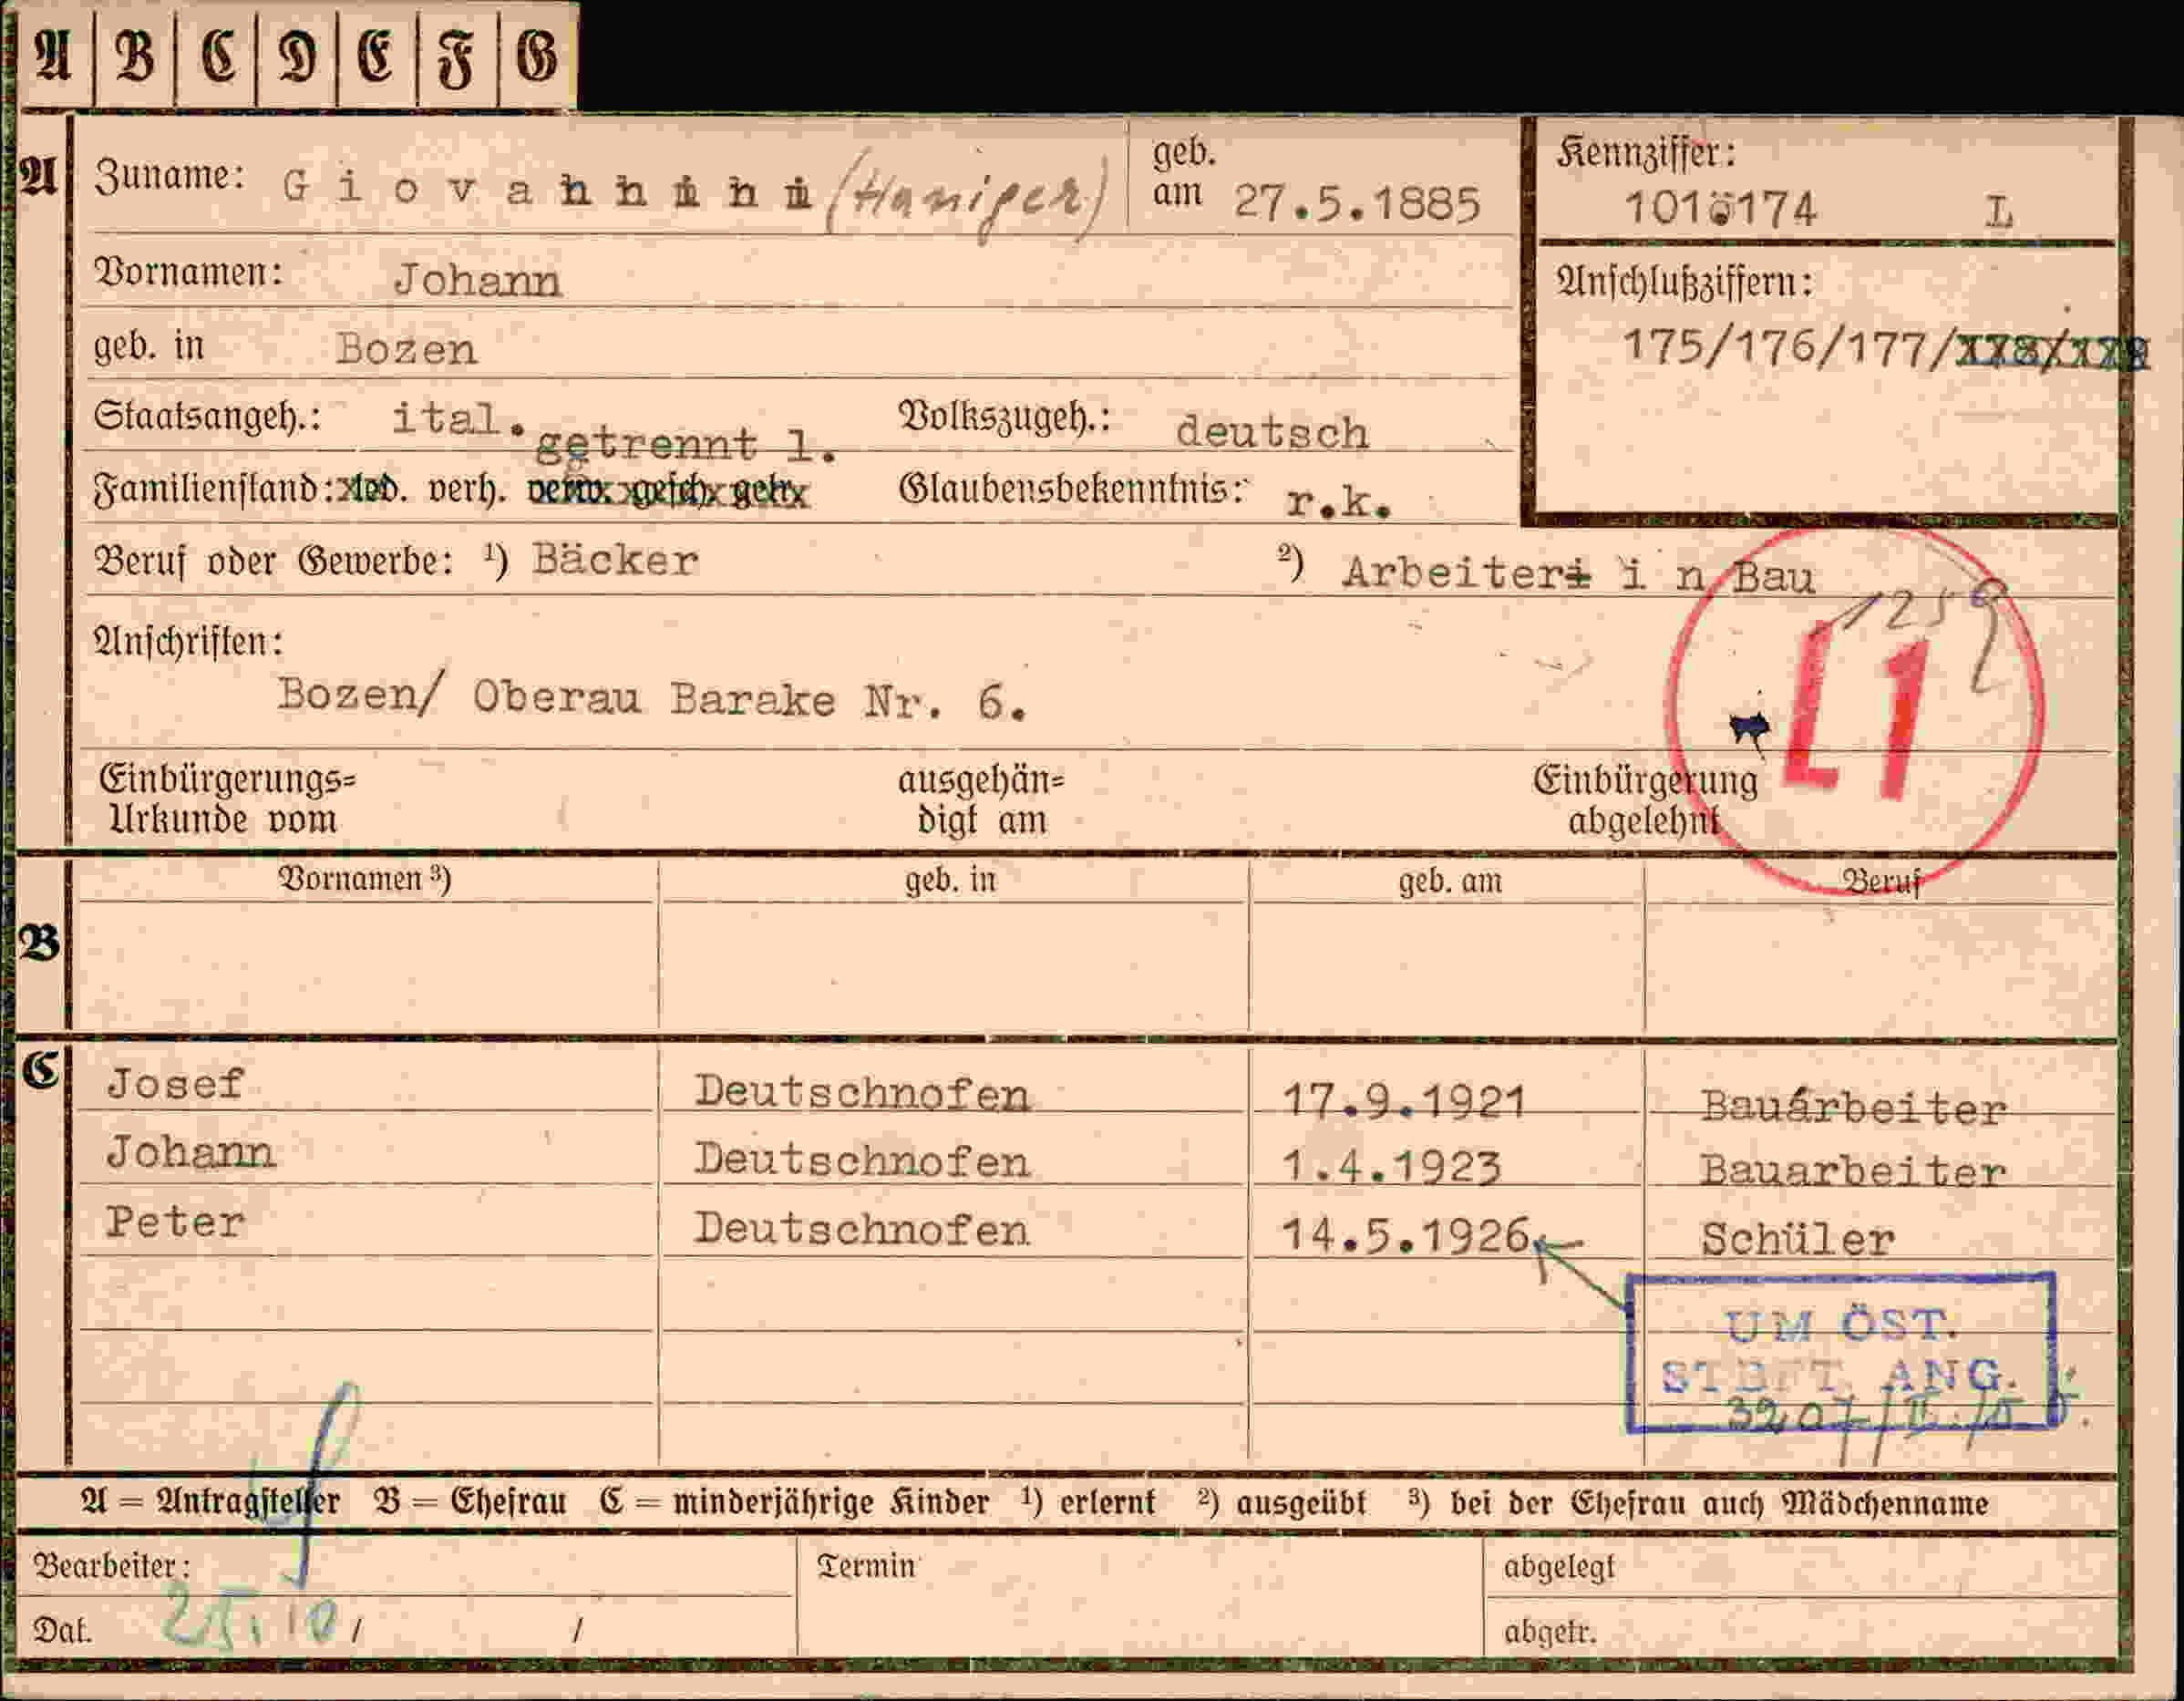 A B C D E F G
A
Zuname: Giovannini (Haniger)
geb. am 27.5.1885
Kennziffer:
L
Vornamen: Johann
Anschlußziffern:
175/176/177/
geb. in Bozen
Staatsangeh.: ital. Volkszugeh.: deutsch
getrennt l.
Familienstand: led. verh. verw. gesch. getr. Glaubensbekenntnis: r.k.
Beruf oder Gewerbe: ¹) Bäcker ²) Arbeiter i n Bau
1259
Anschriften:
L1
Bozen/ Oberau Barake Nr. 6.
Einbürgerungs= ausgehän= Einbürgerung
Urkunde vom digt am abgelehnt
B
Vornamen ³) geb. in geb. am Beruf
C
Josef Deutschnofen 17.9.1921 Bauarbeiter
Johann Deutschnofen 1.4.1923 Bauarbeiter
Peter Deutschnofen 14.5.1926 Schüler
UM ÖST.
STBFT. ANG.
A = Antragsteller B = Ehefrau C = minderjährige Kinder ¹) erlernt ²) ausgeübt ³) bei der Ehefrau auch Mädchenname
Bearbeiter: Termin abgelegt
Dat. 25.10 / / abgetr.